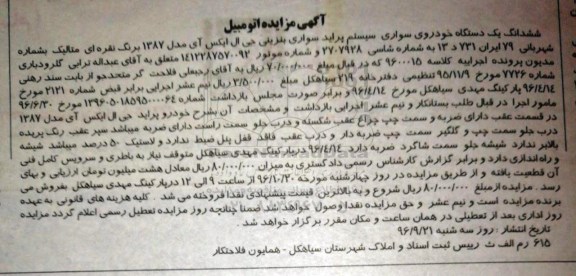 آگهی مزایده اتومبیل
ششدانگ یک دستگاه خودروی سواری سیستم پراید سواری بنزینی جی ال ایکس آی مدل ۱۳۸۷ برنگ نقره ای متالیک بشماره
شهربانی ۷۹ ایران ۷۳۱ د ۱۳ به شماره شاسی ۲۷۰۷۹۲۸ و شماره موتور ۱۴۱۲۲۸۷۵۷۰۰۹۲ متعلق به آقای عبداله ترابی گلرودباری
مدیون پرونده اجراییه کلاسه ۹۶۰۰۰۱۵ که در قبال مبلغ ۷۰/۰۰۰/۰۰۰ ریال به آقای رجبعلی فلاحت گر متحددجو از بابت سند رهنی
شماره ۷۷۲۶ مورخ ۹۵/۱۱/۹ تنظیمی دفترخانه ۲۱۹ سیاهکل مبلغ ۳/۵۰۰/۰۰۰ ریال نیم عشر اجرایی برابر قبض شماره ۲۱۲۱ مورخ
۹۶/۴/۱۴ پارکینگ مهدی سیاهکل مورخ ۹۶/۴/۱۴ و برابر صورت مجلس بازداشت شماره ۱۳۹۶۰۵۰۱۸۵۹۵۰۰۰۰۶۴ مورخ ۹۶/۶/۳۰
مامور اجرا در قبال طلب بستانکار و نیم عشر اجرایی بازداشت و مشخصات آن بشرح خودرو پراید جی ال ایکس آی مدل ۱۳۸۷
در قسمت عقب دارای ضربه و سمت چپ چراغ عقب شکسته و درب جلو سمت راست دارای ضربه میباشد سپر عقب رنگ پریده
درب جلو سمت چپ و گلگیر سمت چپ ضربه دار و درب عقب فاقد قفل پنل ضبط ندارد و لاستیک ۵۰ درصد میباشد شیشه
بالابر ندارد شیشه جلو سمت شاگرد ضربه دارد ۹۶/۴/۱۴ درپارکینگ مهدی سیاهکل متوقف نیاز به باطری و سرویس کامل فنی
و راه اندازی دارد و برابر گزارش کارشناس رسمی دادگستری به میزان ۸۰/۰۰۰/۰۰۰ ریال معادل هشت میلیون تومان ارزیابی و بهای
آن قطعیت یافته و از طریق مزایده در روز چهارشنبه مورخه ۹۶/۱۰/۲۰ از ساعت ۹ الی ۱۲ درپارکینگ مهدی سیاهکل بفروش می
رسد . مزایده از مبلغ ۸۰/۰۰۰/۰۰۰ ریال شروع و به بالاترین قیمت پیشنهادی نقدا فروخته می شد . کلیه هزینه های قانونی به عهده
برنده مزایده است و نیم عشر و حق مزایده نقدا وصول خواهد شد ضمنا چنانچه روز مزایده تعطیل رسمی اعلام گردد مزایده
روز اداری بعد از تعطیلی در همان ساعت و مکان مقرر برگزار خواهد شد.
تاریخ انتشار : روز سه شنبه ۹۶/۹/۲۱
۶۱۵ رم الف ث رییس ثبت اسناد و املاک شهرستان سیاهکل - همایون فلاحتکار